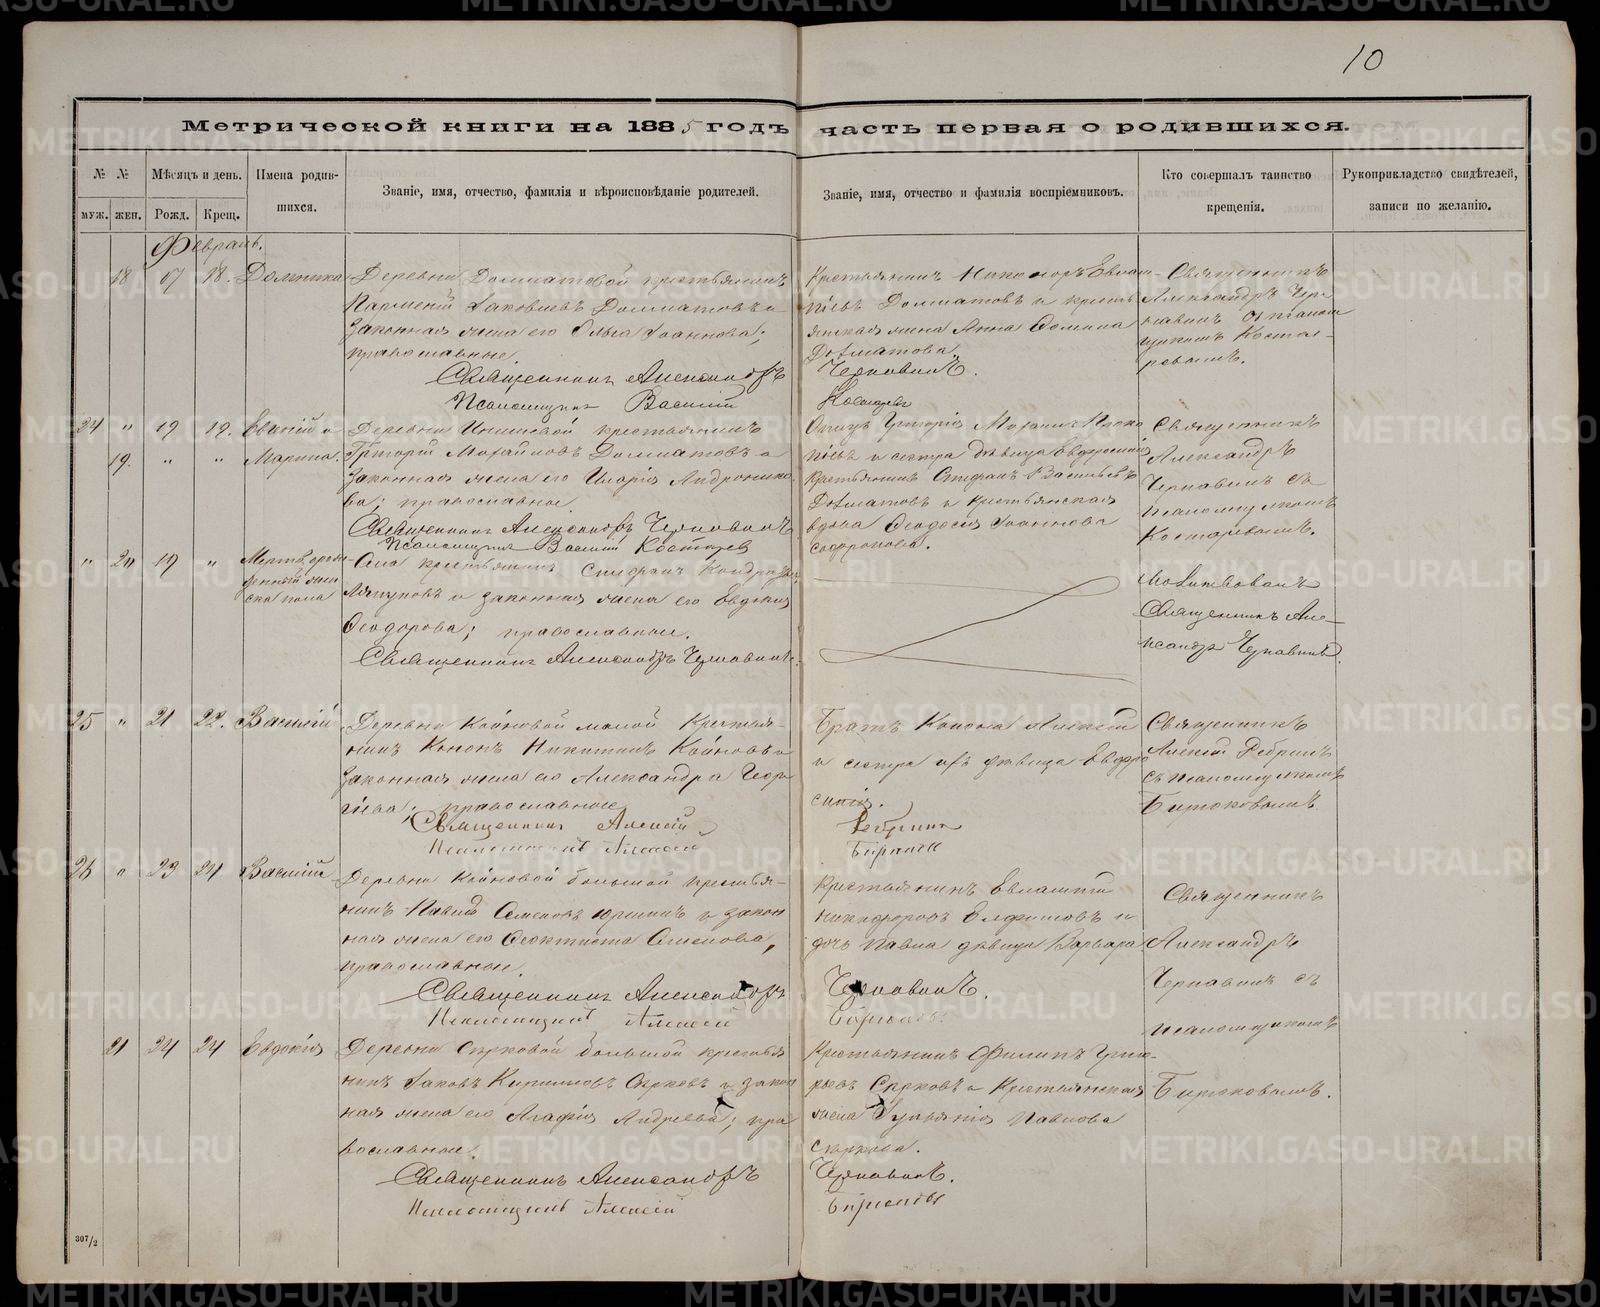 10
Метрической книги на 1885 годъ часть первая о родившихся.
№ № Мѣсяцъ и день. Имена родив-
шихся.
Званіе, имя, отчество, фамилія и вѣроисповѣданіе родителей.
Званіе, имя, отчество и фамилія воспріемниковъ.
Кто совершалъ таинство
крещенія.
Рукоприкладство свидѣтелей,
записи по желанію.
муж. жен. Рожд. Крещ.
Февраль.
18 17 18. Домника
Деревни Долматовой крестьянинъ
Парменій Іаковлевъ Долматовъ и
законная жена его Ольга Іоаннова;
православные.
Священникъ Александръ
Псаломщикъ Василій
Крестьянинъ Никаноръ Евлам-
піевъ Долматовъ и кресть
янская жена Анна Долматова
Чернавинъ.
Костаревъ
Священникъ
Александръ Чер-
навинъ съ псалом
щикомъ Коста-
ревымъ.
24 " 19 19. Евгеній и
19. " " Марина.
Деревни крестьянинъ
Григорій Михайловъ Долматовъ и
законная жена его Марія Андроники
ва; православные.
Священникъ Александръ Чернавинъ
Псаломщикъ Василій Костаревъ
Отецъ Григорія Михаилъ
піевъ и сестра дѣвица Евдокія
Крестьянинъ Стефанъ Васильевъ
Долматовъ и крестьянская
вдова Ѳеодосія Іоаннова
Сидорова.
Священникъ
Александръ
Чернавинъ съ
псаломщикомъ
Костаревымъ.
" 20 19 " Мертворож
денный жен
ска пола
Села крестьянинъ Стефанъ Кондратьевъ
Ляпуновъ и законная жена его Евдокія
Ѳеодорова; православные.
Священникъ Александръ Чернавинъ.
Молитвовалъ
Священникъ Але-
ксандръ Чернавинъ.
25 " 21 22. Василій
Деревни Койновой малой Крестья-
нинъ Кононъ Никитинъ Койновъ и
законная жена его Александра Геор
гіева; православные
Священникъ Алексій
Псаломщикъ Алексій
Братъ Конона Алексій
и сестра ихъ дѣвица Евфро
синія.
Ребринъ
Бирюковъ
Священникъ
Алексій Ребринъ
съ псаломщикомъ
Бирюковымъ
26 " 23 24 Василій
Деревни Койновой большой крестья-
нинъ Павелъ Семеновъ Юринъ и закон
ная жена его Ѳеоктиста Семенова,
православные.
Священникъ Александръ
Псаломщикъ Алексій
Крестьянинъ Евлампій
Никифоровъ Елфимовъ и
дочь Павла дѣвица Варвара
Чернавинъ.
Бирюковъ
Священникъ
Александръ
Чернавинъ съ
псаломщикомъ
Бирюковымъ.
21 24 24 Евдокія
Деревни Сырковой большой крестья
нинъ Іаковъ Кириловъ Сырковъ и закон
ная жена его Агафія Андреева; пра
вославные.
Священникъ Александръ
Псаломщикъ Алексій
Крестьянинъ Филипъ Григо-
рьевъ Сырковъ и Крестьянская
жена Павлова
Сыркова.
Чернавинъ.
Бирюковъ
307/2
METRIKI.GASO-URAL.RU